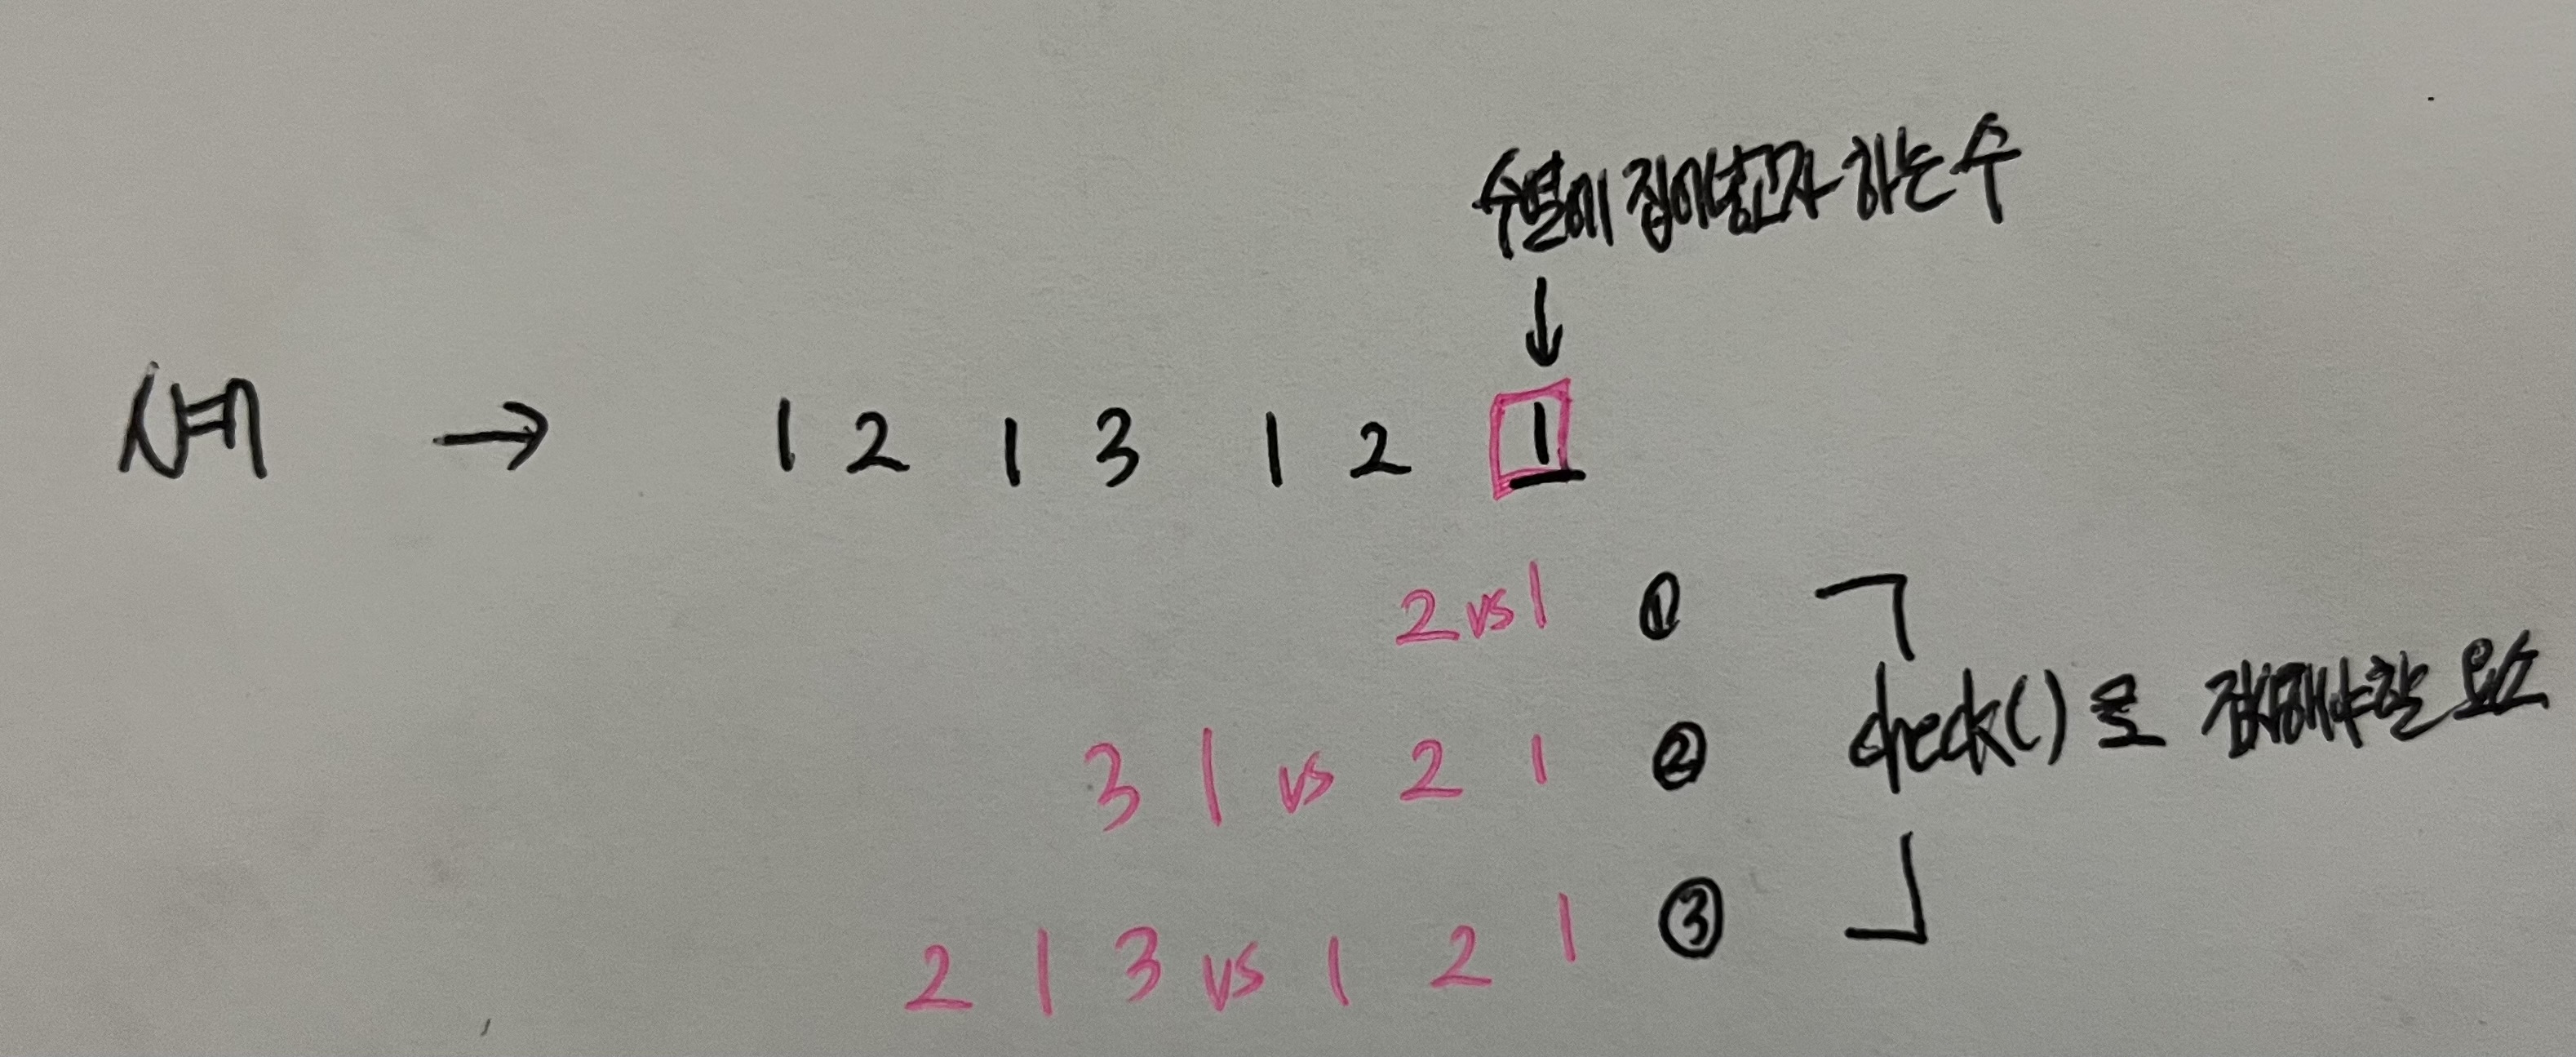 수열에 집어넣고자 하는 수
↓
상태 → 1 2 1 3 1 2 1
2 vs 1 ①
3 1 vs 2 1 ②
check()로 검사해야할 요소
2 1 3 vs 1 2 1 ③